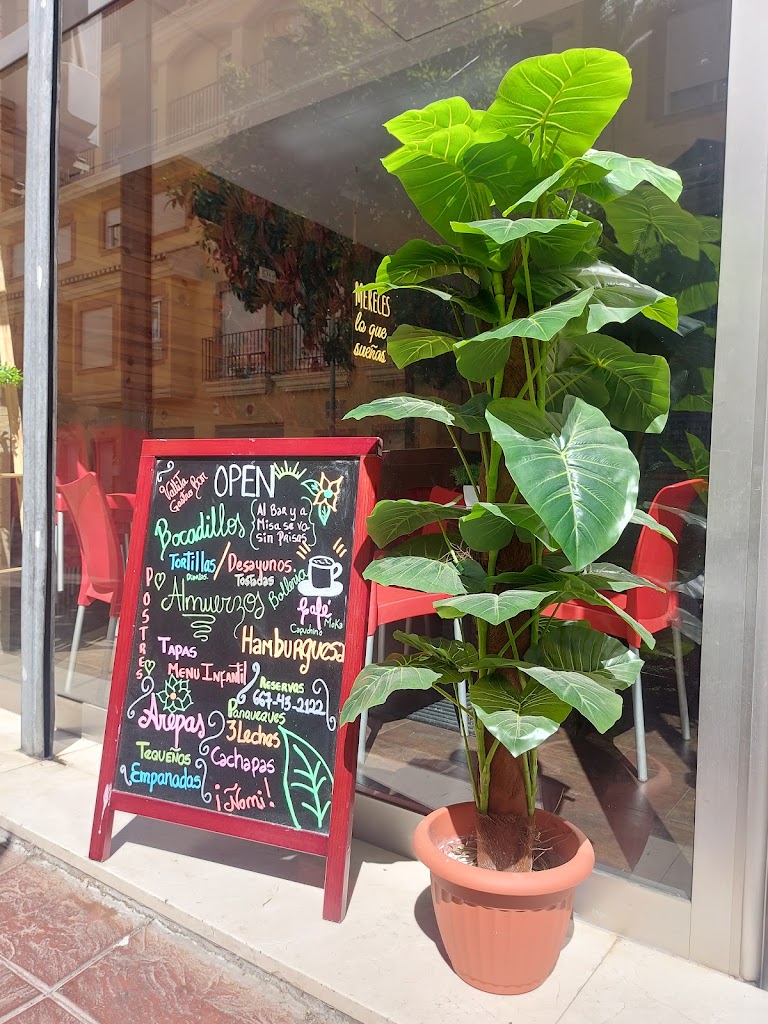 Gastro Bar
OPEN
Al Bar y a
Misa se va
sin prisas
Bocadillos
Tortillas / Desayunos
Tostadas
Almuerzos
Bolleria
POSTRES
Café
Capuchino
Moka
Hamburguesa
TAPAS
MENU Infantil
Reservas
667-43-2122
Panqueques
Arepas
3 Leches
Tequeños
Cachapas
Empanadas
¡Ñami!
MERECES
lo que
sueñas